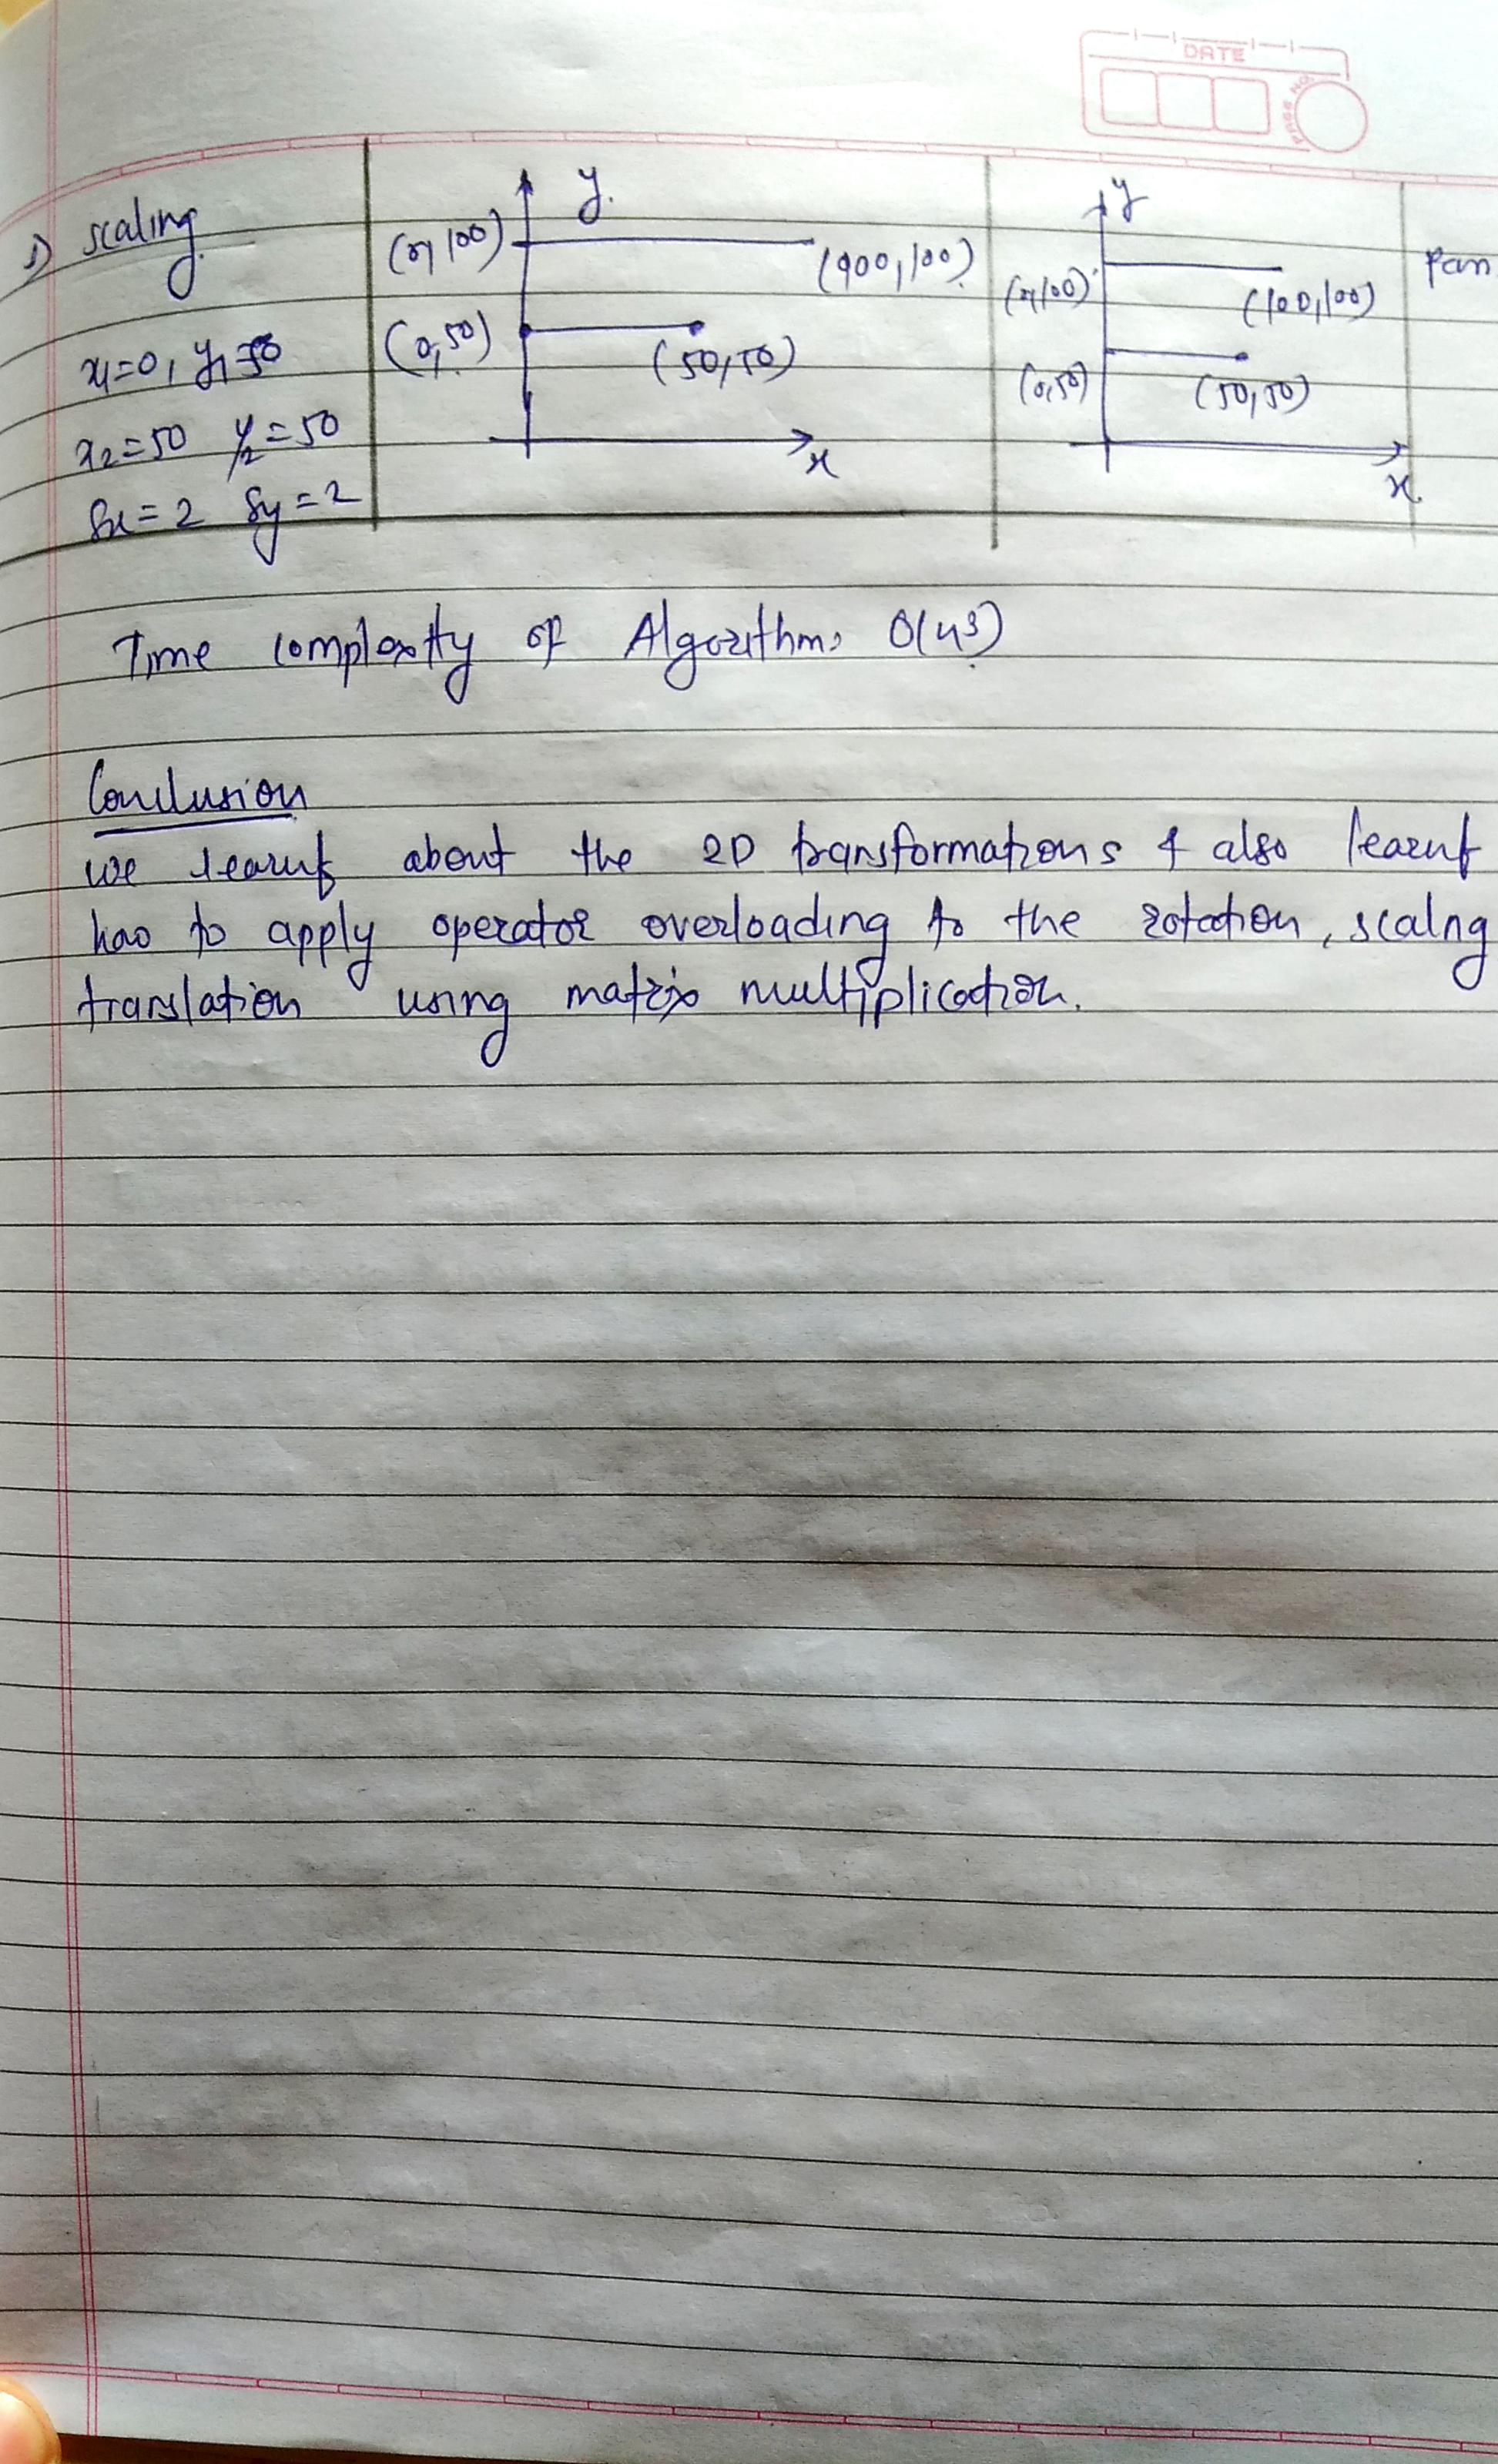 DATE
PAGE NO.
3) scaling
x1=0, y1=50
x2=50 y2=50
Sx=2 Sy=2
y.
(0,100)
(900,100)
(0,50)
(50,50)
x
y
(0,100)
(100,100)
(0,50)
(50,50)
x.
Time complexity of Algorithm
Conclusion
we learnt about the 2D transformations & also learnt
hao to apply operator overloading to the rotation, scalng
translation using matrix multiplication.